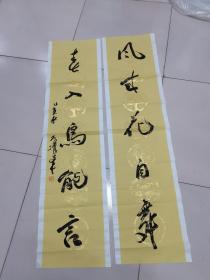 风来花自舞
春入鸟能言